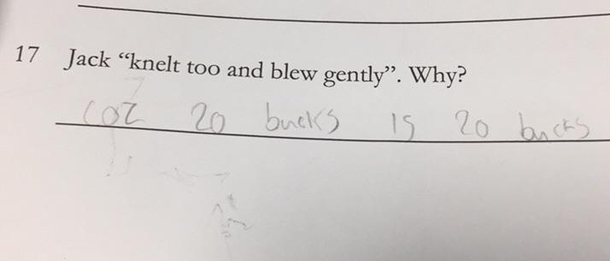 17 Jack “knelt too and blew gently”. Why?
coz 20 bucks is 20 bucks